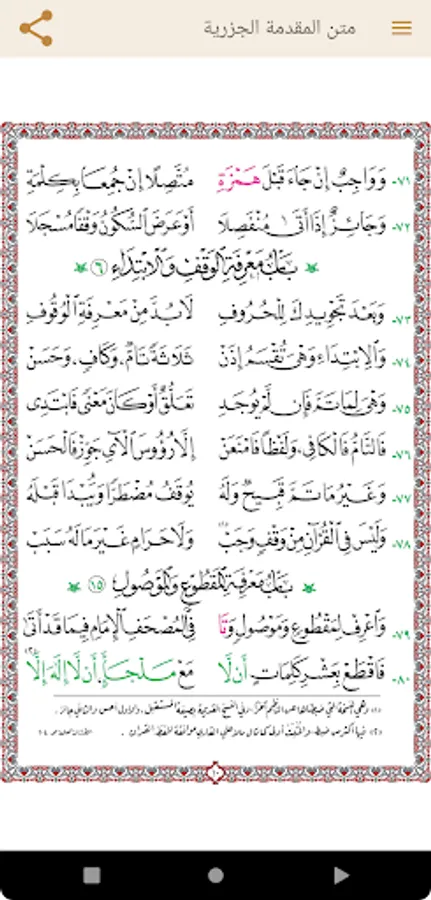 متن المقدمة الجزرية
٧١- وَوَاجِبٌ إِنْ جَاءَ قَبْلَ هَمْزَةِ مُتَّصِلًا إِنْ جُمِعَا بِكِلْمَةِ
٧٢- وَجَائِزٌ إِذَا أَتَىٰ مُنْفَصِلَا أَوْ عَرَضَ السُّكُونُ وَقْفًا مُسْجَلَا
بَابُ مَعْرِفَةِ الْوَقْفِ وَالْاِبْتِدَاءِ ٦
٧٣- وَبَعْدَ تَجْوِيدِكَ لِلْحُرُوفِ لَابُدَّ مِنْ مَعْرِفَةِ الْوُقُوفِ
٧٤- وَالْاِبْتِدَاءِ وَهْيَ تُقْسَمُ إِذَنْ ثَلَاثَةً تَامٌ، وَكَافٍ، وَحَسَنْ
٧٥- وَهْيَ لِمَا تَمَّ فَإِنْ لَمْ يُوجَدِ تَعَلُّقٌ أَوْ كَانَ مَعْنًى فَابْتَدِي
٧٦- فَالتَّامُ فَالْكَافِي، وَلَفْظًا فَامْنَعَنْ إِلَّا رُؤُوسَ الْآيِ جَوِّزْ فَالْحَسَنْ
٧٧- وَغَيْرُ مَا تَمَّ قَبِيحٌ وَلَهُ يُوقَفُ مُضْطَرًّا وَيُبْدَا قَبْلَهُ
٧٨- وَلَيْسَ فِي الْقُرْآنِ مِنْ وَقْفٍ وَجَبْ وَلَا حَرَامٍ غَيْرَ مَا لَهُ سَبَبْ
بَابُ مَعْرِفَةِ الْمَقْطُوعِ وَالْمَوْصُولِ ١٥
٧٩- وَاعْرِفْ لِمَقْطُوعٍ وَمَوْصُولٍ وَتَا فِي الْمُصْحَفِ الْإِمَامِ فِيمَا قَدْ أَتَىٰ
٨٠- فَاقْطَعْ بِعَشْرِ كَلِمَاتٍ أَن لَّا مَعْ مَلْجَإٍ أَن لَّا إِلَٰهَ إِلَّا
١٠